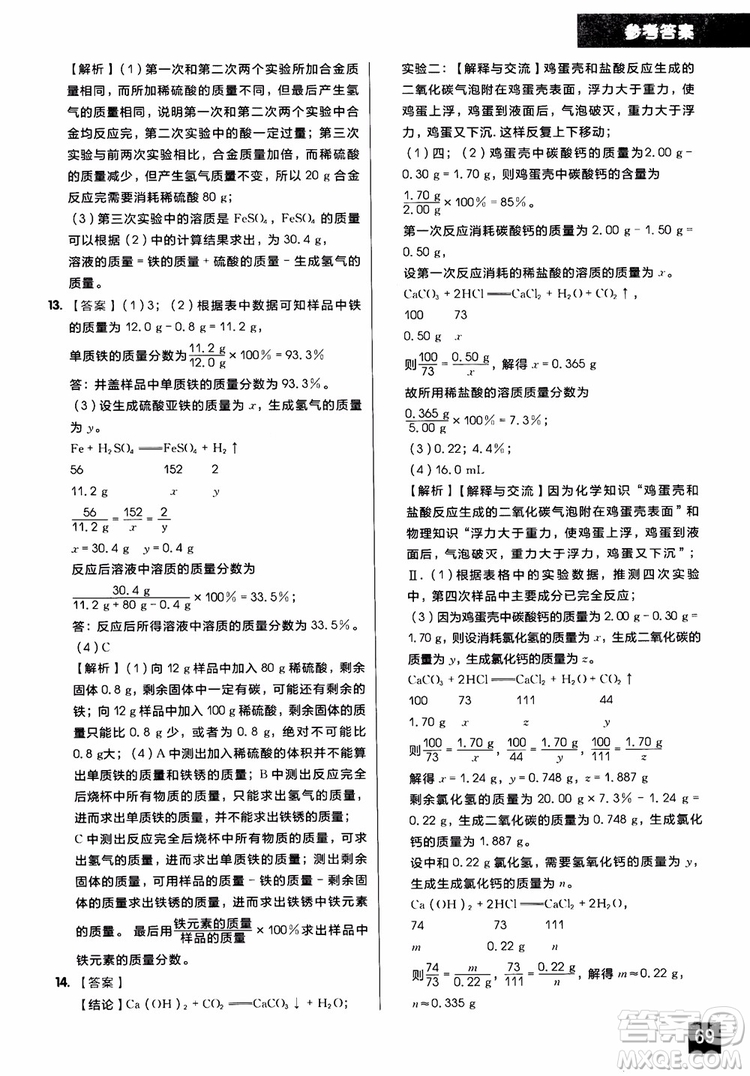 参考答案
【解析】(1)第一次和第二次两个实验所加合金质
量相同,而所加稀硫酸的质量不同,但最后产生氢
气的质量相同,说明第一次实验和第二次实验中合
金均反应完,第二次实验中的酸一定过量;第三次
实验与前两次实验相比,合金质量加倍,而稀硫酸
的质量减少,但产生氢气质量不变,所以 20 g 合金
反应完需要消耗稀硫酸 80 g;
(3)第三次实验中的溶质是 FeSO₄,FeSO₄ 的质量
可以根据(2)中的计算结果求出,为 30.4 g,
溶液的质量=铁的质量+硫酸的质量-生成氢气的
质量。
13.【答案】(1)3;(2)根据表中数据可知样品中铁
的质量为 12.0 g-0.8 g=11.2 g,
单质铁的质量分数为 11.2 g/12.0 g ×100%=93.3%
答:井盖样品中单质铁的质量分数为 93.3%。
(3)设生成硫酸亚铁的质量为 x,生成氢气的质量
为 y。
Fe+H₂SO₄══FeSO₄+H₂↑
56 152 2
11.2 g x y
56/11.2 g=152/x=2/y
x=30.4 g y=0.4 g
反应后溶液中溶质的质量分数为
30.4 g/(11.2 g+80 g-0.4 g)×100%=33.5%;
答:反应后所得溶液中溶质的质量分数为 33.5%。
(4)C
【解析】(1)向 12 g 样品中加入 80 g 稀硫酸,剩余
固体 0.8 g,剩余固体中一定有碳,可能还有剩余的
铁;向 12 g 样品中加入 100 g 稀硫酸,剩余固体的质
量可能比 0.8 g 少,或是 0.8 g,绝对不可能比
0.8 g大;(4)A 中测出加入稀硫酸的体积并不能算
出单质铁的质量和铁锈的质量;B 中测出反应完全
后烧杯中所有物质的质量,只能求出氢气的质量,
求出单质铁的质量,并不能求出铁锈的质量;
C 中测出反应完全后烧杯中所有物质的质量,可求
出氢气的质量,求出单质铁的质量;测出剩余
固体的质量,可用样品的质量-单质铁的质量-剩余
固体的质量求出铁锈的质量,求出铁锈中铁元素
的质量。最后用 铁元素的质量/样品的质量 ×100%求出样品中
铁元素的质量分数。
14.【答案】
【结论】Ca(OH)₂+CO₂══CaCO₃↓+H₂O;
实验二:【解释与交流】鸡蛋壳和盐酸反应生成的
二氧化碳气泡附在鸡蛋壳表面,浮力大于重力,鸡
蛋上浮,鸡蛋到液面后,气泡破灭,重力大于浮
力,鸡蛋又下沉.这样反复上下移动;
(1)四;(2)鸡蛋壳中碳酸钙的质量为2.00 g-
0.30 g=1.70 g,则鸡蛋壳中碳酸钙的含量为
1.70 g/2.00 g ×100%=85%。
第一次反应消耗碳酸钙的质量为 2.00 g-1.50 g=
0.50 g,
设第一次反应消耗的稀盐酸的溶质的质量为 x。
CaCO₃+2HCl══CaCl₂+H₂O+CO₂↑,
100 73
0.50 g x
则 100/73=0.50 g/x,解得 x=0.365 g
故所用稀盐酸的溶质质量分数为
0.365 g/5.00 g ×100%=7.3%;
(3)0.22;4.4%;
(4)16.0 mL
【解析】【解释与交流】因为化学知识“鸡蛋壳和
盐酸反应生成的二氧化碳气泡附在鸡蛋壳表面”和
物理知识“浮力大于重力,使鸡蛋上浮,鸡蛋到液
面后,气泡破灭,重力大于浮力,鸡蛋又下沉”;
Ⅱ.(1)根据表格中的实验数据,推测四次实验
中,第四次样品的主要成分已完全反应;
(3)因为鸡蛋壳中碳酸钙的质量为 2.00 g-0.30 g=
1.70 g,设反应氯化氢的质量为 x,生成二氧化碳的
质量为 y,生成氯化钙的质量为z。
CaCO₃+2HCl══CaCl₂+H₂O+CO₂↑,
100 73 111 44
1.70 g x z y
则 100/73=1.70 g/x,100/44=1.70 g/y,100/111=1.70 g/z
解得 x=1.24 g,y=0.748 g,z=1.887 g
剩余氯化氢的质量为 20.00 g×7.3%-1.24 g=
0.22 g,生成二氧化碳的质量为0.748 g,生成氯化
钙的质量为1.89 g。
设中和 0.22 g 氯化氢,需要氢氧化钙的质量为 y,
生成生成氯化钙的质量为 n。
Ca(OH)₂+2HCl══CaCl₂+H₂O
74 73 111
m 0.22 g n
则 74/73=m/0.22 g,73/111=0.22 g/n,解得 m≈0.22 g,
n≈0.335 g
69
答案圈
MXQE.COM